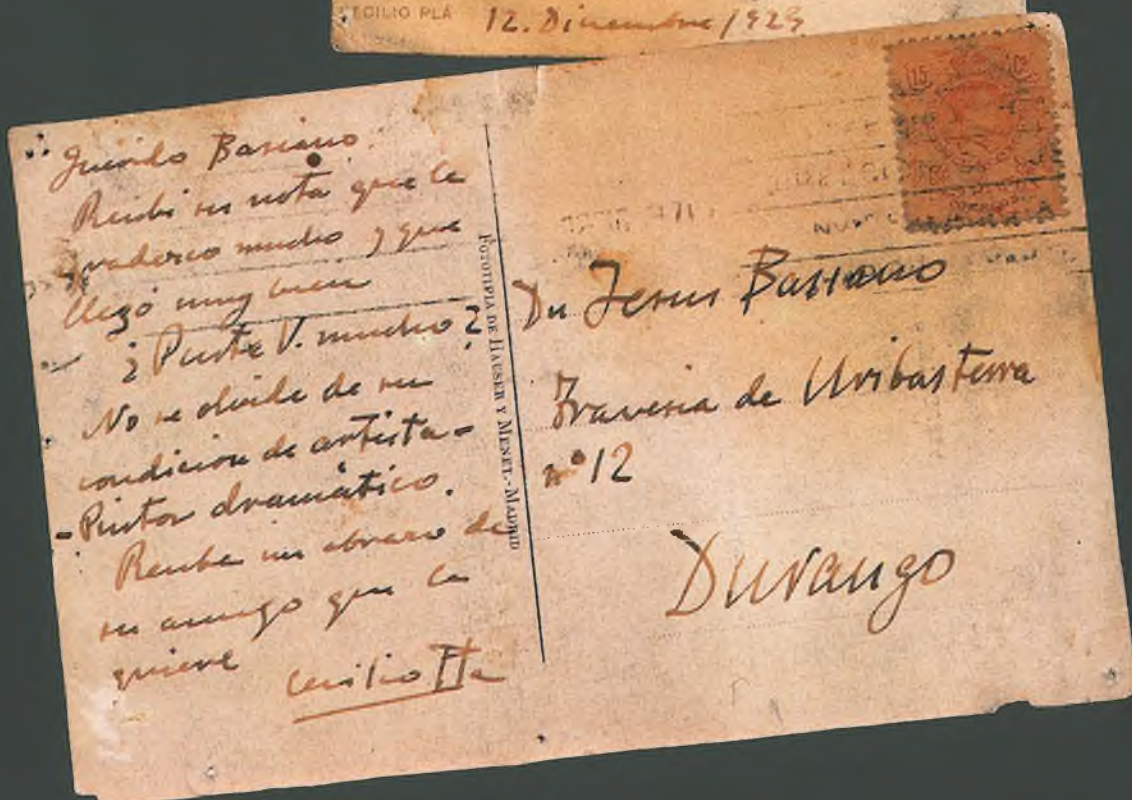 CECILIO PLÁ
12. Diciembre 1923
Querido Basiano.
Recibi su nota que le
agradezco mucho y que
llegó muy bien
¿Pinta V. mucho?
No se olvide de su
condicion de artista-
-Pintor dramático.
Reciba un abrazo de
su amigo que le
quiere
Cecilio Pla
FOTOTIPIA DE HAUSER Y MENET.-MADRID
15 Cs
Dn Jesus Basiano
Travesia de Uribasterra
nº 12
Durango